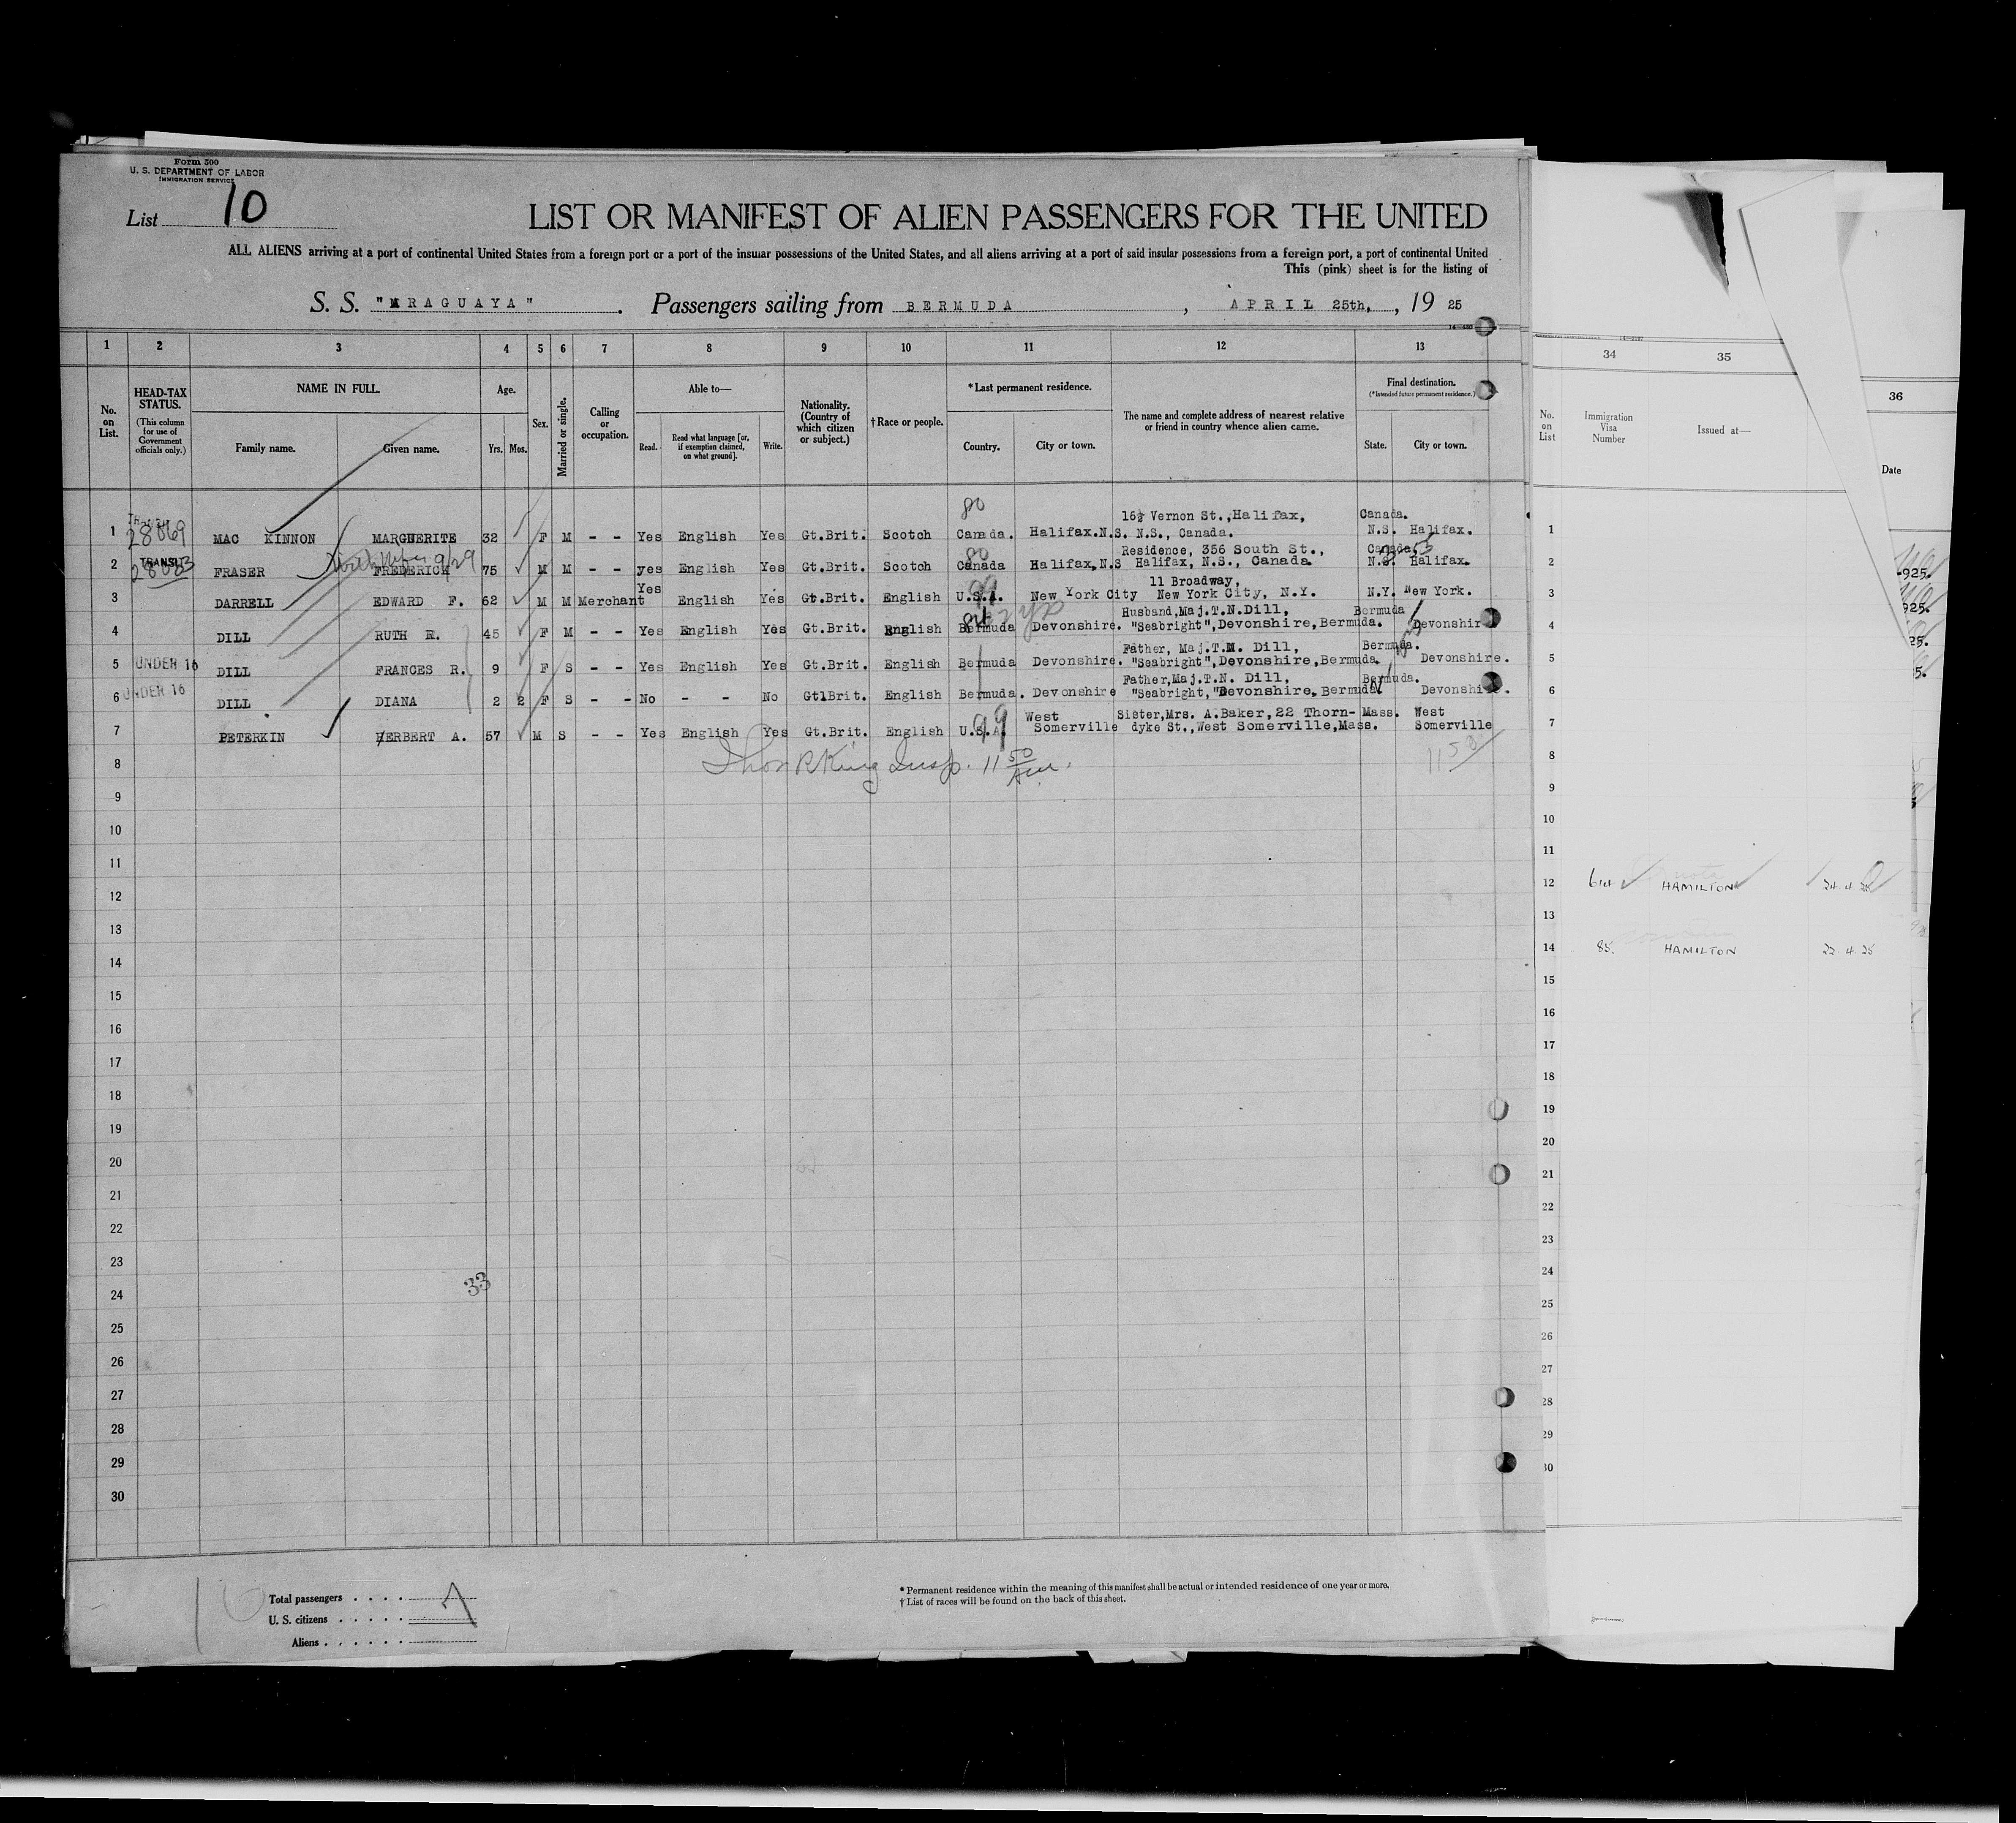 Form 500
U. S. DEPARTMENT OF LABOR
IMMIGRATION SERVICE
List 10
LIST OR MANIFEST OF ALIEN PASSENGERS FOR THE UNITED
ALL ALIENS arriving at a port of continental United States from a foreign port or a port of the insular possessions of the United States, and all aliens arriving at a port of said insular possessions from a foreign port, a port of continental United
This (pink) sheet is for the listing of
S. S. "ARAGUAYA". Passengers sailing from BERMUDA, APRIL 25th, , 19 25
1 2 3 4 5 6 7 8 9 10 11 12 13
34 35 36
No. on List.
HEAD-TAX STATUS.
(This column for use of Government officials only.)
NAME IN FULL.
Family name. Given name.
Age.
Yrs. Mos.
Sex.
Married or single.
Calling or occupation.
Able to—
Read. Read what language [or, if exemption claimed, on what ground]. Write.
Nationality. (Country of which citizen or subject.)
† Race or people.
*Last permanent residence.
Country. City or town.
The name and complete address of nearest relative or friend in country whence alien came.
Final destination.
(*Intended future permanent residence.)
State. City or town.
No. on List
Immigration Visa Number
Issued at—
Date
80
16½ Vernon St.,Halifax, Canada.
1 28069 MAC KINNON MARGUERITE 32 F M - - Yes English Yes Gt.Brit. Scotch Canada. Halifax.N.S. N.S., Canada. N.S. Halifax. 1
TRANSIT 80 Residence, 356 South St., Canada.
2 28083 FRASER FREDERICK 75 M M - - yes English Yes Gt.Brit. Scotch Canada Halifax,N.S Halifax, N.S., Canada. N.S. Halifax. 2
Yes 99 11 Broadway,
3 DARRELL EDWARD F. 62 M M Merchant English Yes Gt.Brit. English U.S.A. New York City New York City, N.Y. N.Y. New York. 3
Husband,Maj.T.N.Dill, Bermuda
4 DILL RUTH R. 45 F M - - Yes English Yes Gt.Brit. English Bermuda Devonshire. "Seabright",Devonshire,Bermuda. Devonshir 4
Father, Maj.T.N. Dill, Bermuda.
5 UNDER 16 DILL FRANCES R. 9 F S - - Yes English Yes Gt.Brit. English Bermuda Devonshire. "Seabright",Devonshire,Bermuda. Devonshire. 5
Father,Maj.T.N. Dill, Bermuda.
6 UNDER 16 DILL DIANA 2 2 F S - - No - - No Gt1Brit. English Bermuda. Devonshire "Seabright,"Devonshire, Bermuda. Devonshire. 6
99 West Sister,Mrs. A.Baker,22 Thorn- Mass. West
7 PETERKIN HERBERT A. 57 M S - - Yes English Yes Gt.Brit. English U.S.A. Somerville dyke St.,West Somerville,Mass. Somerville 7
8 Thos R King Insp. 11 50 AM. 11 50 8
9 9
10 10
11 11
12 614 HAMILTON 24.4. 12
13 13
14 85. HAMILTON 22.4.25 14
15 15
16 16
17 17
18 18
19 19
20 20
21 21
22 22
23 23
33
24 24
25 25
26 26
27 27
28 28
29 29
30 30
Total passengers . . . . 7
U. S. citizens . . . . .
Aliens . . . . . .
* Permanent residence within the meaning of this manifest shall be actual or intended residence of one year or more.
† List of races will be found on the back of this sheet.